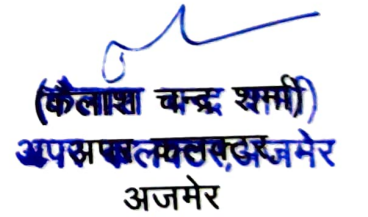 (कैलाश चन्द्र शर्मा)
अपर कलक्टर, अजमेर
अजमेर